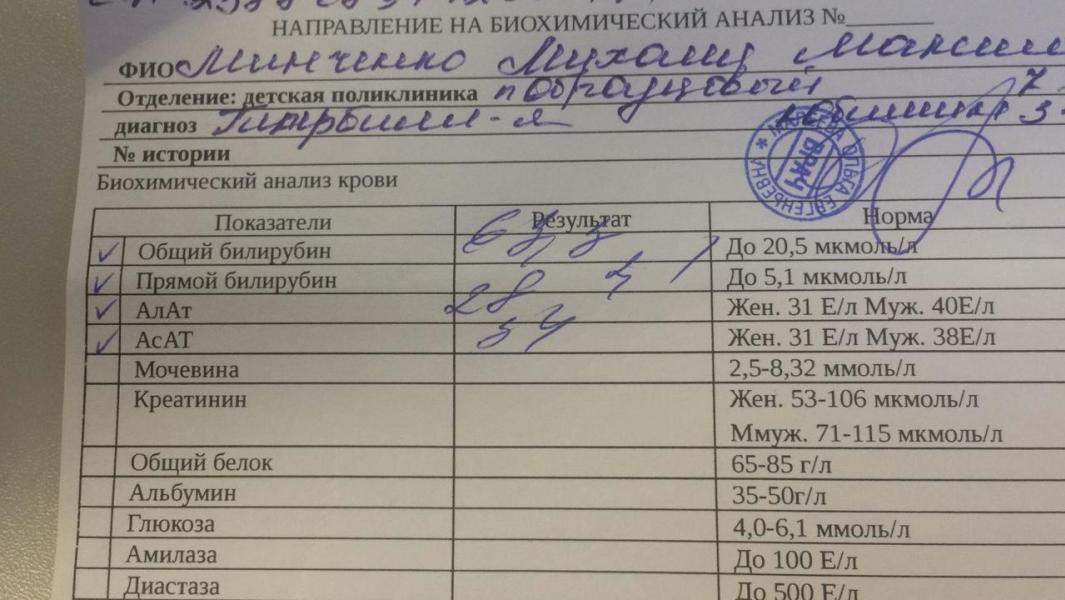 НАПРАВЛЕНИЕ НА БИОХИМИЧЕСКИЙ АНАЛИЗ №
ФИО Минченко
Отделение: детская поликлиника
диагноз
№ истории
Биохимический анализ крови
Показатели Результат Норма
Общий билирубин До 20,5 мкмоль/л
Прямой билирубин До 5,1 мкмоль/л
АлАт 28 Жен. 31 Е/л Муж. 40Е/л
АсАТ 54 Жен. 31 Е/л Муж. 38Е/л
Мочевина 2,5-8,32 ммоль/л
Креатинин Жен. 53-106 мкмоль/л
Ммуж. 71-115 мкмоль/л
Общий белок 65-85 г/л
Альбумин 35-50г/л
Глюкоза 4,0-6,1 ммоль/л
Амилаза До 100 Е/л
Диастаза До 500 Е/л
ВРАЧ
ОЛЬГА ЕВГЕНЬЕВНА